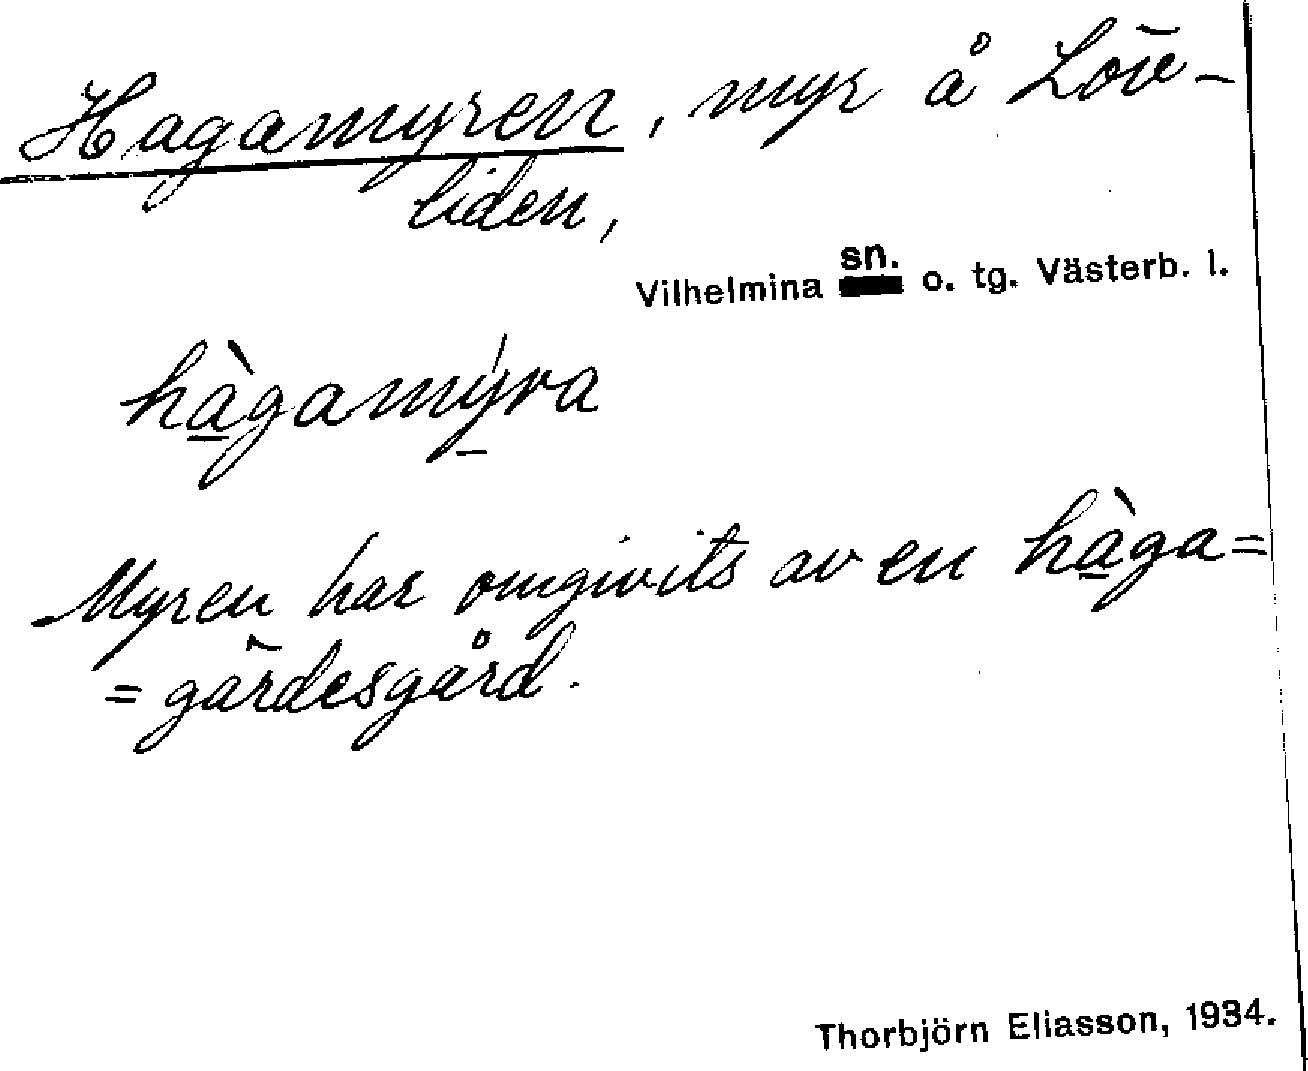 Hagamyren, myr å Löv-
liden,
Vilhelmina sn. o. tg. Västerb. l.
hàgamýra
Myren har omgivits av en hàga=
= gärdesgård.
Thorbjörn Eliasson, 1934.